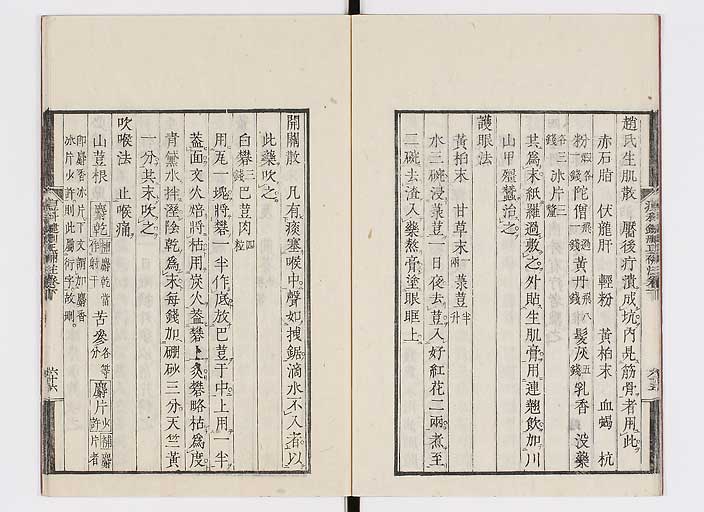 趙氏生肌散　靨後疔潰成坑內見筋骨者用此
赤石脂　伏龍肝　輕粉　黃柏末　血蝎　杭
粉　陀僧　黃丹　髮灰五錢　乳香　沒藥
各三錢　冰片三
其爲末紙羅過敷之外貼生肌膏用連翹飲加川
山甲殭蠶治之
護眼法
黃柏末一兩　甘草末　菉荳半升
水三碗浸菉荳一日後去荳入好紅花二兩煮至
二碗去渣入藥熬膏塗眼眶上
開關散　凡有痰塞喉中聲如拽鋸滴水不入者以
此藥吹之
白礬三錢　巴荳肉四粒
用瓦一塊將礬一半作底放巴荳于中上用一半
蓋面文火焙將枯用炭火蓋礬上炙礬略枯爲度
青黛水拌溼陰乾爲末每錢加硼砂三分天竺黃
一分共末吹之
吹喉法　止喉痛
山荳根　麝乾　苦參各等分　麝片